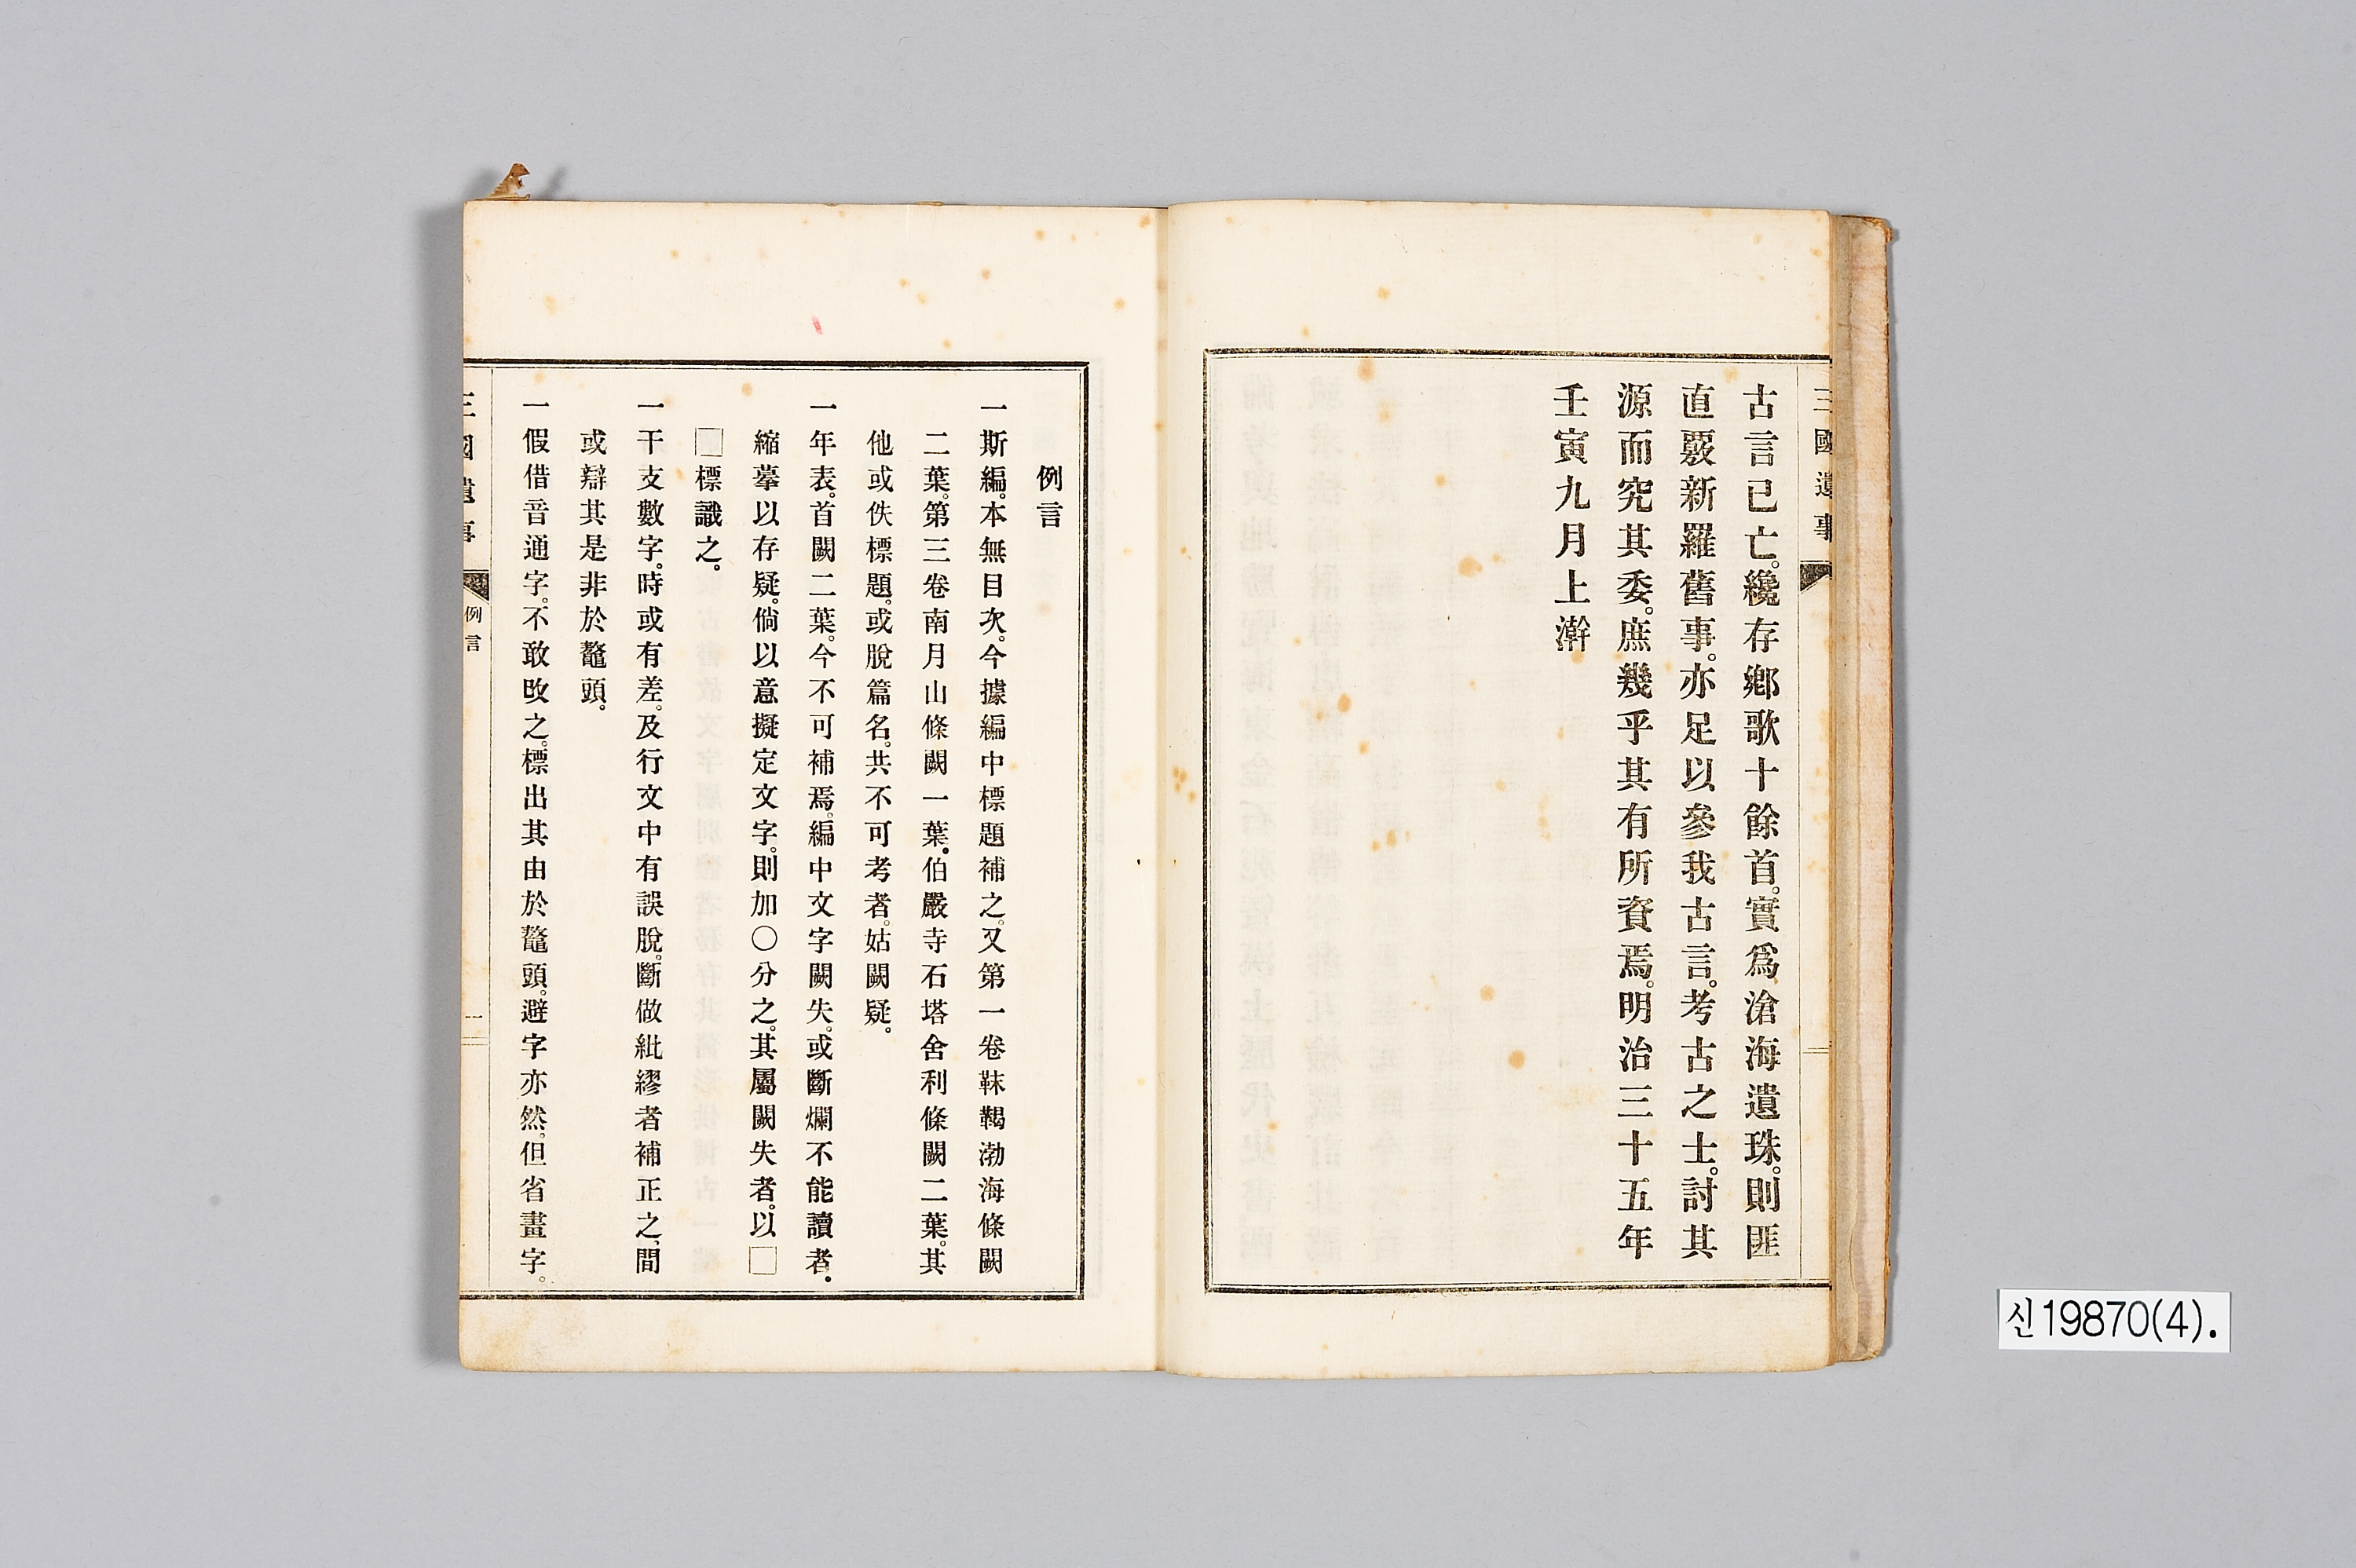 三國遺事
古言已亡。纔存鄕歌十餘首。實爲滄海遺珠。則匪
直覈新羅舊事。亦足以參我古言。考古之士。討其
源而究其委。庶幾乎其有所資焉。明治三十五年
壬寅九月上澣
例言
一斯編。本無目次。今據編中標題補之。又第一卷靺鞨渤海條闕
二葉。第三卷南月山條闕一葉。伯嚴寺石塔舍利條闕二葉。其
他或佚標題。或脫篇名。共不可考者。姑闕疑。
一年表。首闕二葉。今不可補焉。編中文字闕失。或斷爛不能讀者。
縮摹以存疑。倘以意擬定文字。則加〇分之。其屬闕失者。以□
□標識之。
一干支數字。時或有差。及行文中有誤脫。斷做紕繆者補正之、間
或辯其是非於鼇頭。
一假借音通字。不敢改之。標出其由於鼇頭。避字亦然。但省畫字。
三國遺事
例言
一
신19870(4).